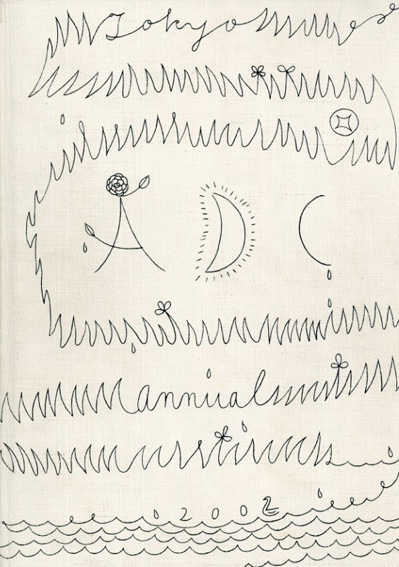 Tokyo
ADC
annual
2002